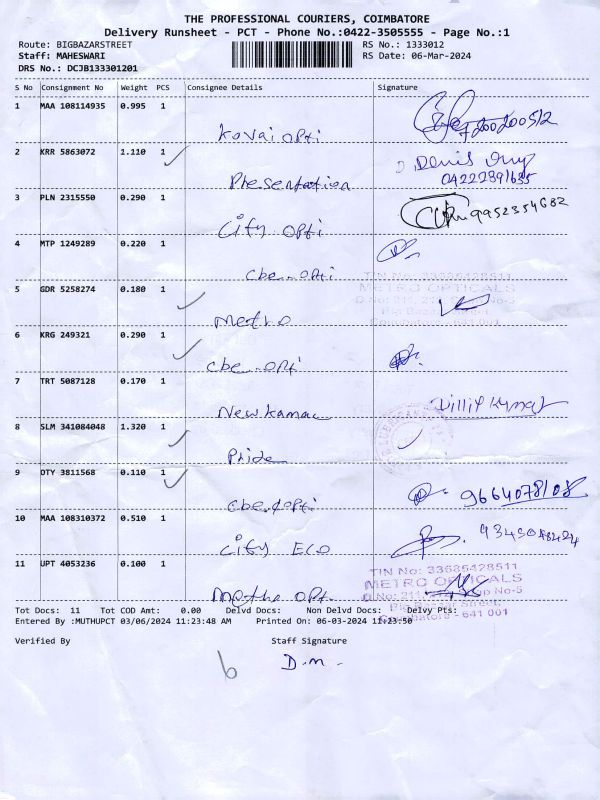 THE PROFESSIONAL COURIERS, COIMBATORE
Delivery Runsheet - PCT - Phone No.:0422-3505555 - Page No.:1
Route: BIGBAZARSTREET RS No.: 1333012
Staff: MAHESWARI RS Date: 06-Mar-2024
DRS No.: DCJB133301201
S No Consignment No Weight PCS Consignee Details Signature
1 MAA 108114935 0.995 1
Kovai opti
2 KRR 5863072 1.110 1
Presentation 04222891635
3 PLN 2315550 0.290 1
City opti 9952354682
4 MTP 1249289 0.220 1
cbe. opti
TIN No: 33685428511
METRO OPTICALS
5 GDR 5258274 0.180 1
Metro
6 KRG 249321 0.290 1
cbe. opti
7 TRT 5087128 0.170 1
New kamac
8 SLM 341084048 1.320 1
Pride
9 OTY 3811568 0.110 1
cbe. opti 9664078108
10 MAA 108310372 0.510 1
City Eco
11 UPT 4053236 0.100 1
TIN No: 33685428511
METRO OPTICALS
Big Bazaar Street,
Coimbatore - 641 001
Tot Docs: 11 Tot COD Amt: 0.00 Delvd Docs: Non Delvd Docs: Delvy Pts:
Entered By :MUTHUPCT 03/06/2024 11:23:48 AM Printed On: 06-03-2024 11:23:50
Verified By Staff Signature
D.M.